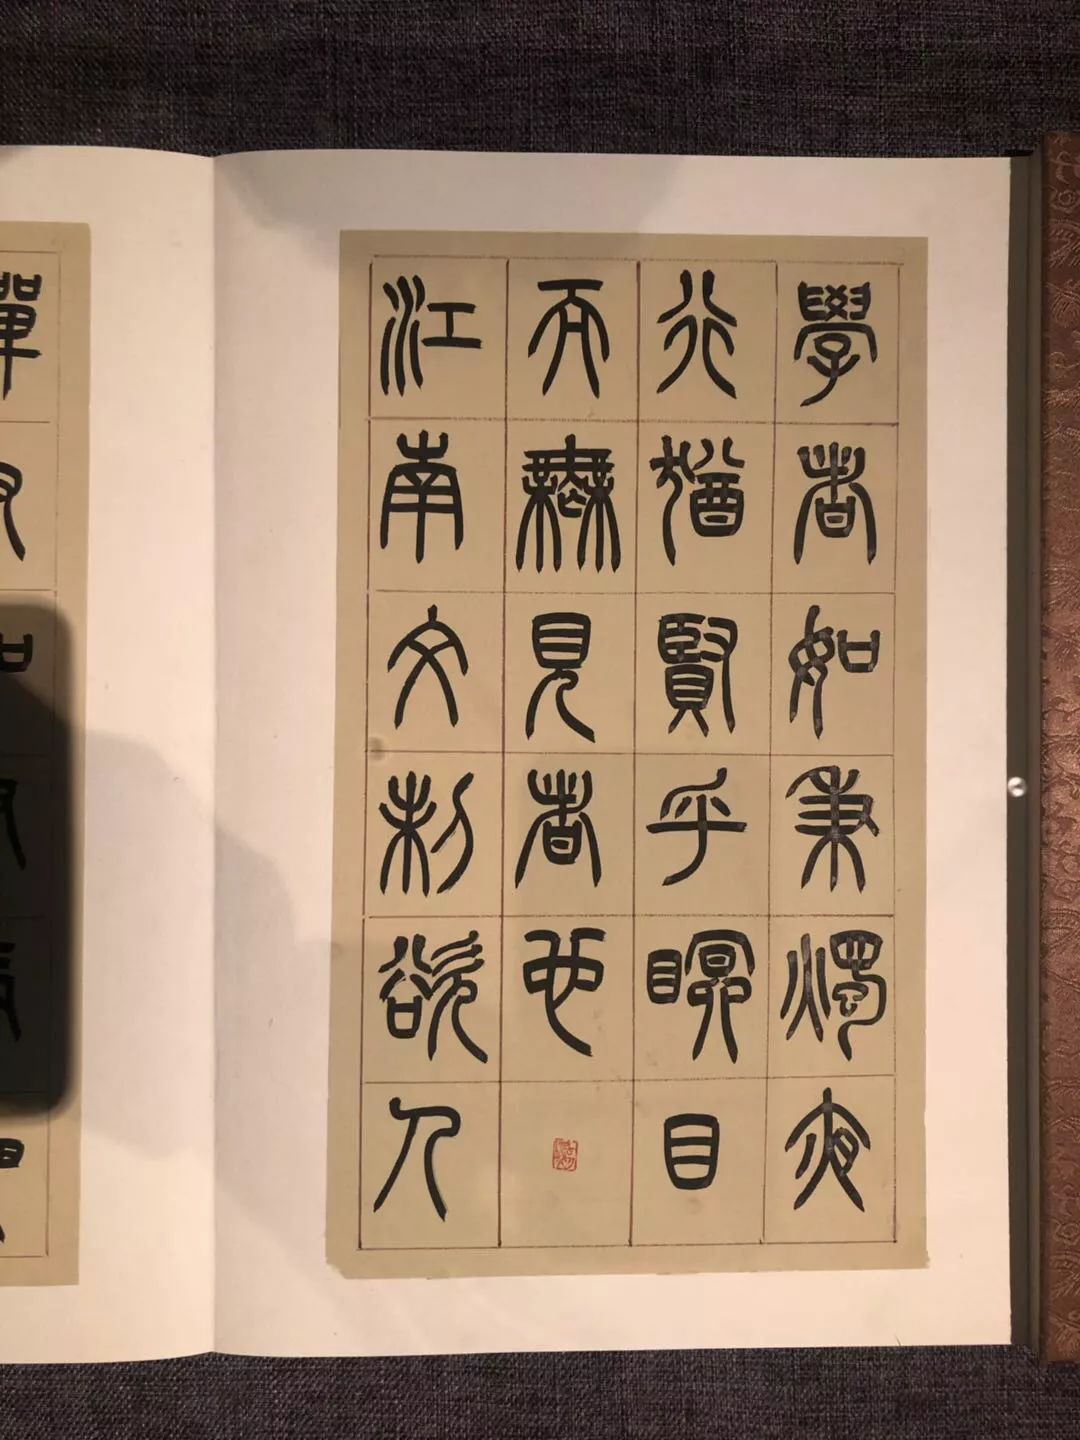 學者如秉燭夜
行猶賢乎瞑目
而無見者也
江南文制欲人